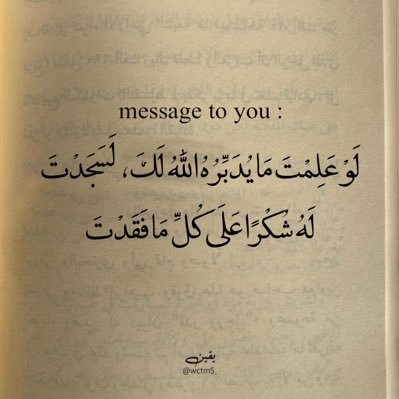 message to you :
لَوْ عَلِمْتَ مَا يُدَبِّرُهُ اللّٰهُ لَكَ، لَسَجَدْتَ
لَهُ شُكْرًا عَلَى كُلِّ مَا فَقَدْتَ
يقين
@wctm5_